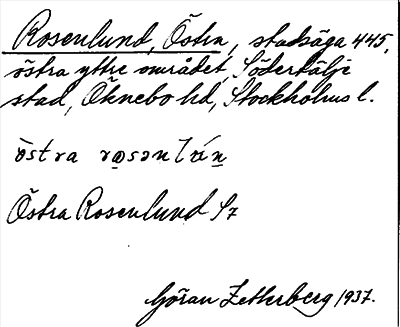 Rosenlund, Östra, stadsäga 445,
östra yttre området, Södertälje
stad, Öknebo hd, Stockholms l.
östra
Östra Rosenlund S7
Göran Zetterberg 1937.